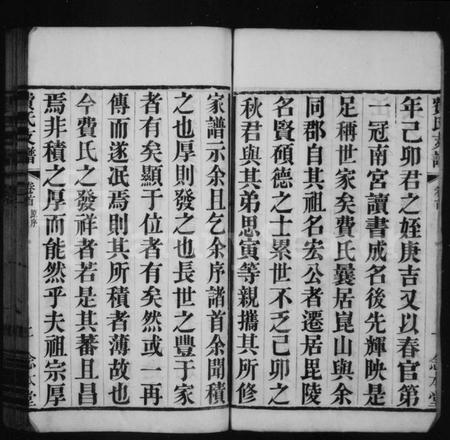 年己卯君之姪庚吉又以春官第
一冠南宮讀書成名後先輝映是
足稱世家矣費氏曩居崑山與余
同郡自其祖名宏公者遷居毘陵
名賢碩德之士累世不乏己卯之
秋君與其弟思寅等親攜其所修
家譜示余且乞余序諸首余聞積
之也厚則發之也長世之豐于家
者有矣顯于位者有矣然或一再
傳而遂泯焉則其所積者薄故也
今費氏之發祥者若是其蕃且昌
焉非積之厚而能然乎夫祖宗厚
費氏支譜 卷首 念本堂